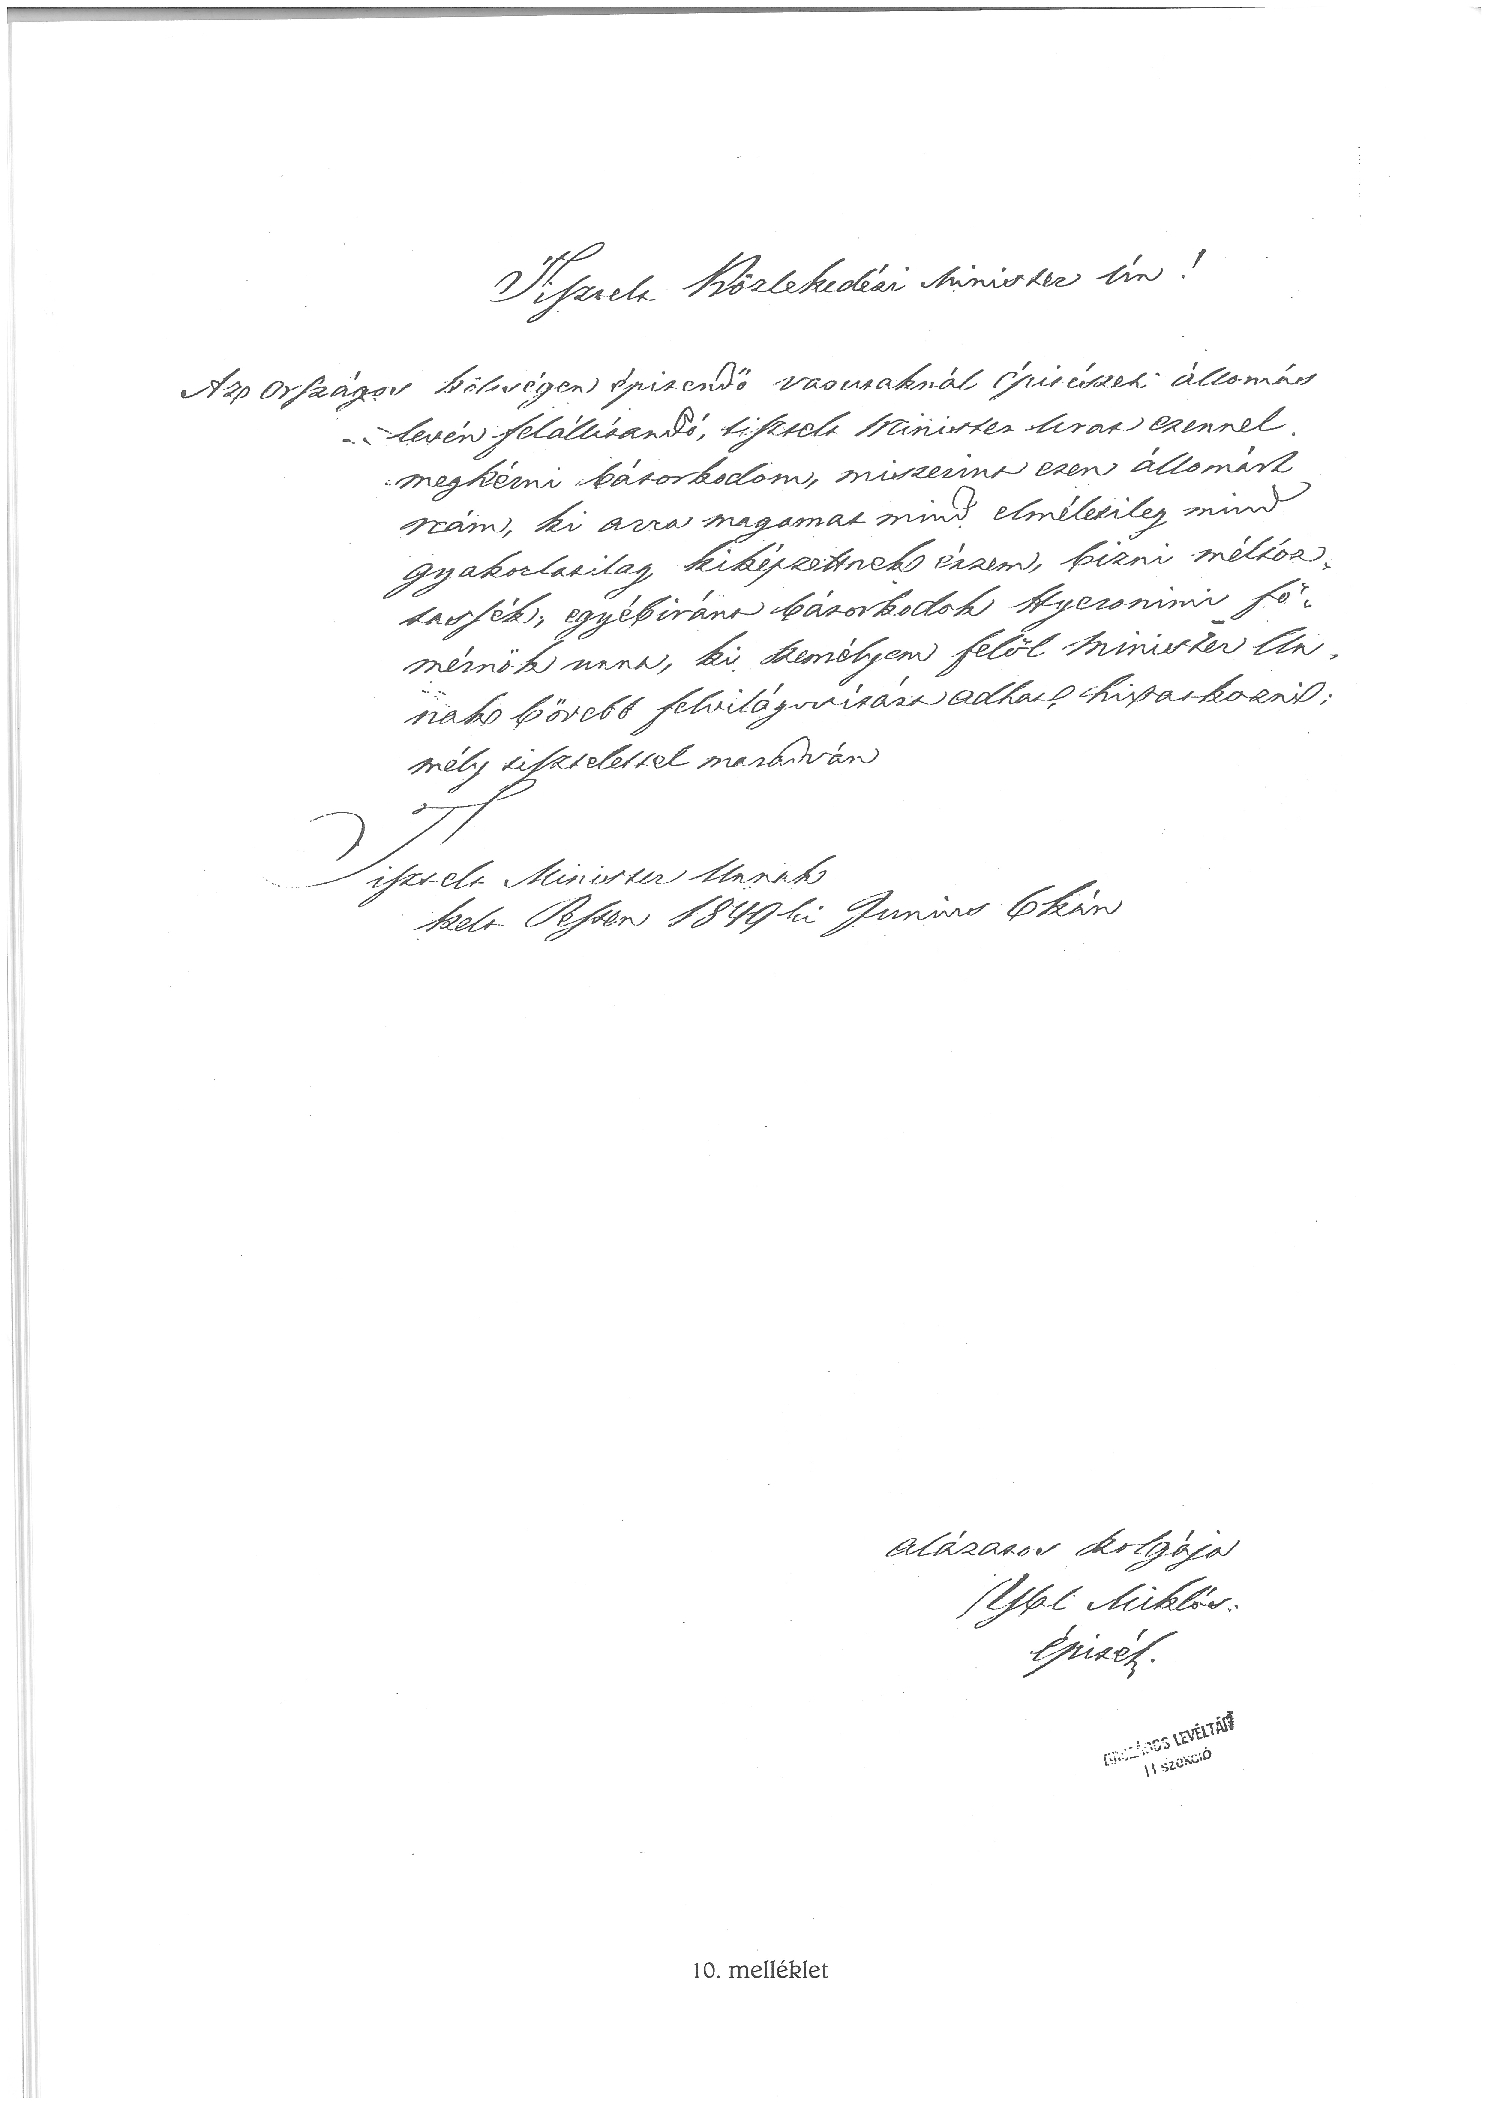 Tisztelt Közlekedési Minister Úr!
Az országos költségen épitendő vasutaknál épitészeti állomás
levén felállitandó, tisztelt Minister Urat ezennel
megkérni bátorkodom, miszerint ezen állomást
reám, ki arra magamat mind elméletileg mind
gyakorlatilag kiképzettnek érzem, bizni méltóz-
tassék; egyébiránt bátorkodok Hyeronimi fő-
mérnök urra, ki személyem felöl Minister Ur-
nak bövebb felvilágositást adhat, hivatkozni;
mély tisztelettel maradván
Tisztelt Minister Urnak
kelt Pesten 1849 ki Junius 6kán
alázatos szolgája
Ybl Miklós.
épitész.
ORSZÁGOS LEVÉLTÁR
II szekció
10. melléklet